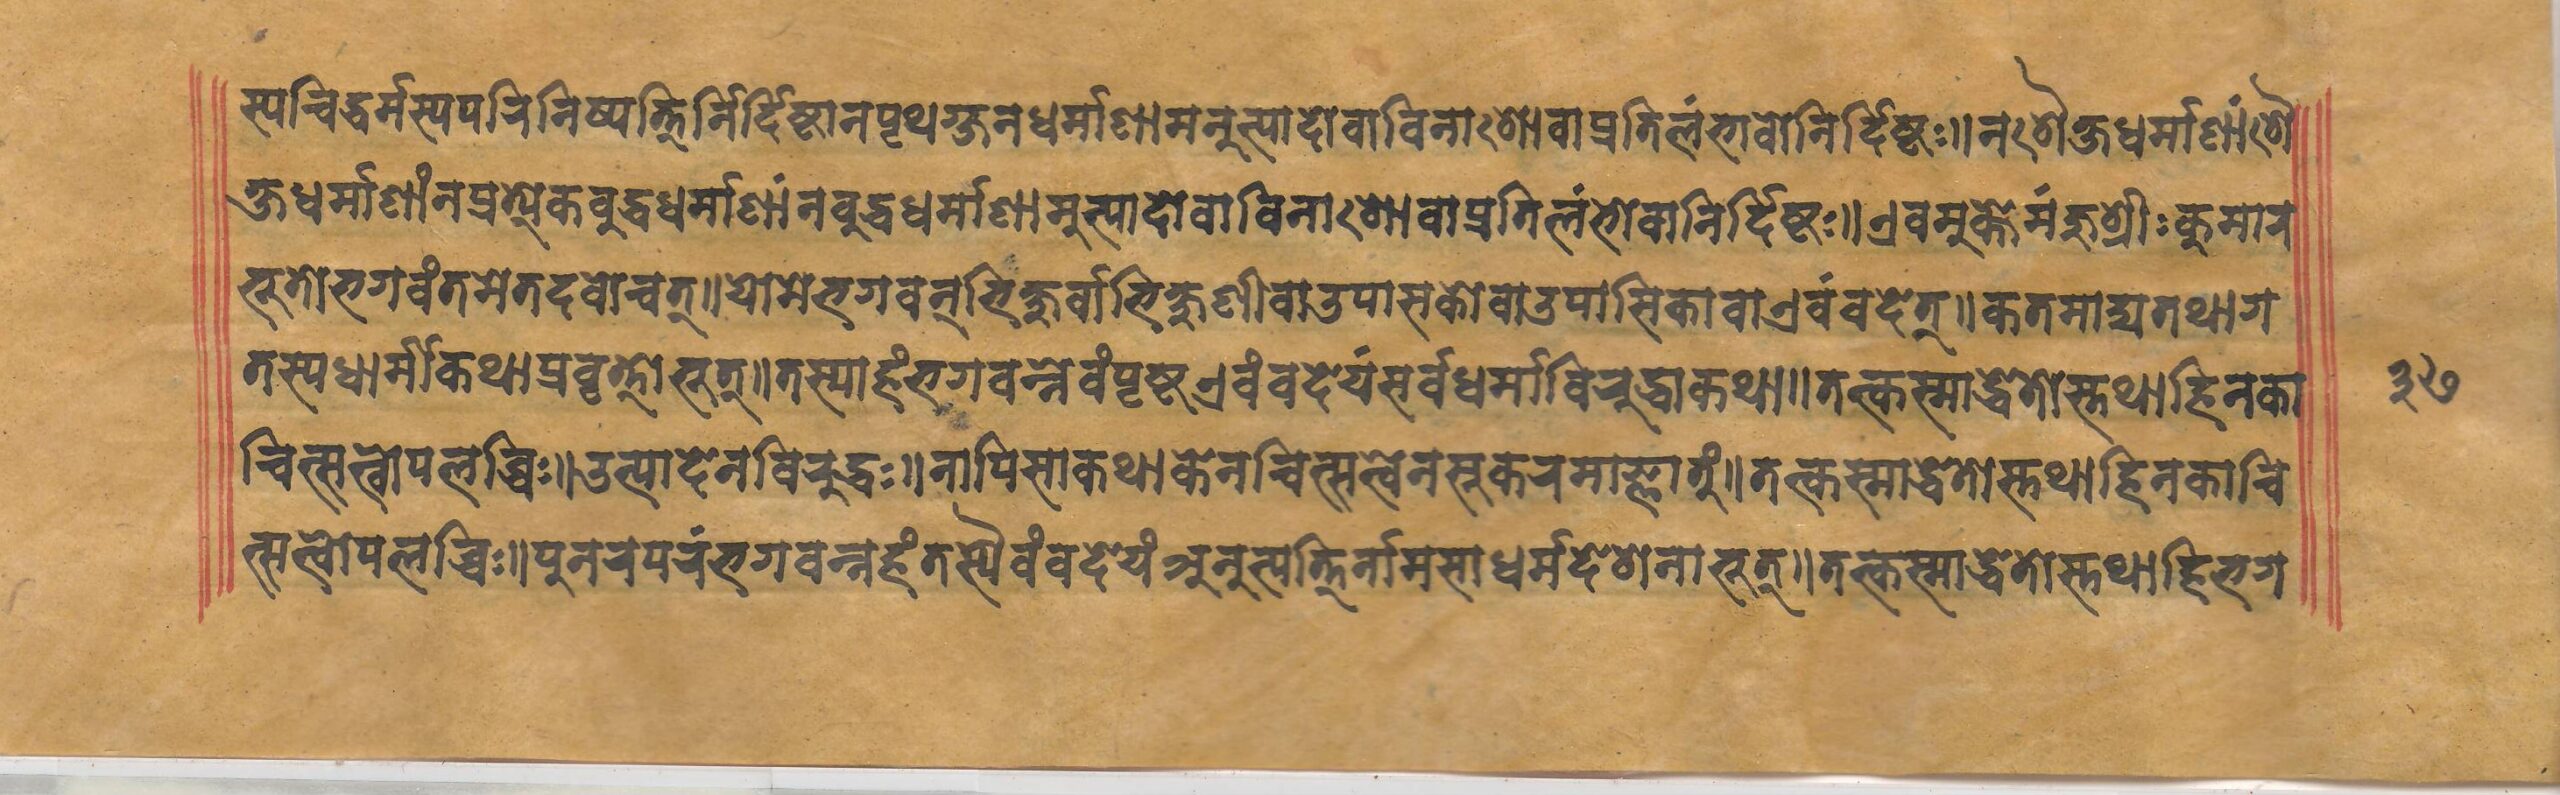 स्यचिद्धर्मस्यपरिनिष्पत्तिर्निर्दिष्टानपृथग्जनधर्माणामनुत्पादोवाविनाशोवाप्रतिलंभोवोनिर्दिष्टः॥नशैक्षधर्माणांशै
क्षधर्माणांनप्रत्येकबुद्धधर्माणांनबुद्धधर्माणामुत्पादोवाविनाशोवाप्रतिलंभोवानिर्दिष्टः॥एवमुक्तेमंजुश्रीःकुमार
भूतोभगवंतमेतदवोचत्॥योमेभगवन्भिक्षुर्वाभिक्षुणीवाउपासकोवाउपासिकावाएवंवदेत्॥कतमाद्यतथाग
तस्यधार्मीकथाप्रवृत्तोभूत्॥तस्याहंभगवन्नेवंपृष्टएवंवदेयंसर्वधर्माविरुद्धाकथा॥तत्कस्माद्धेतोस्तथाहिनका
चित्सत्वोपलब्धिः॥उत्पादेनविरुद्धः॥नापिसाकथाकेनचित्सत्वेनसूकरमाज्ञातुं॥तत्कस्माद्धेतोस्तथाहिनकाचि
त्सत्वोपलब्धिः॥पुनरपरंभगवन्नहंतस्यैवंवदेयंअनुत्पत्तिर्नामसाधर्मदेशनाभूत्॥तत्कस्माद्धेतोस्तथाहिभग
३७